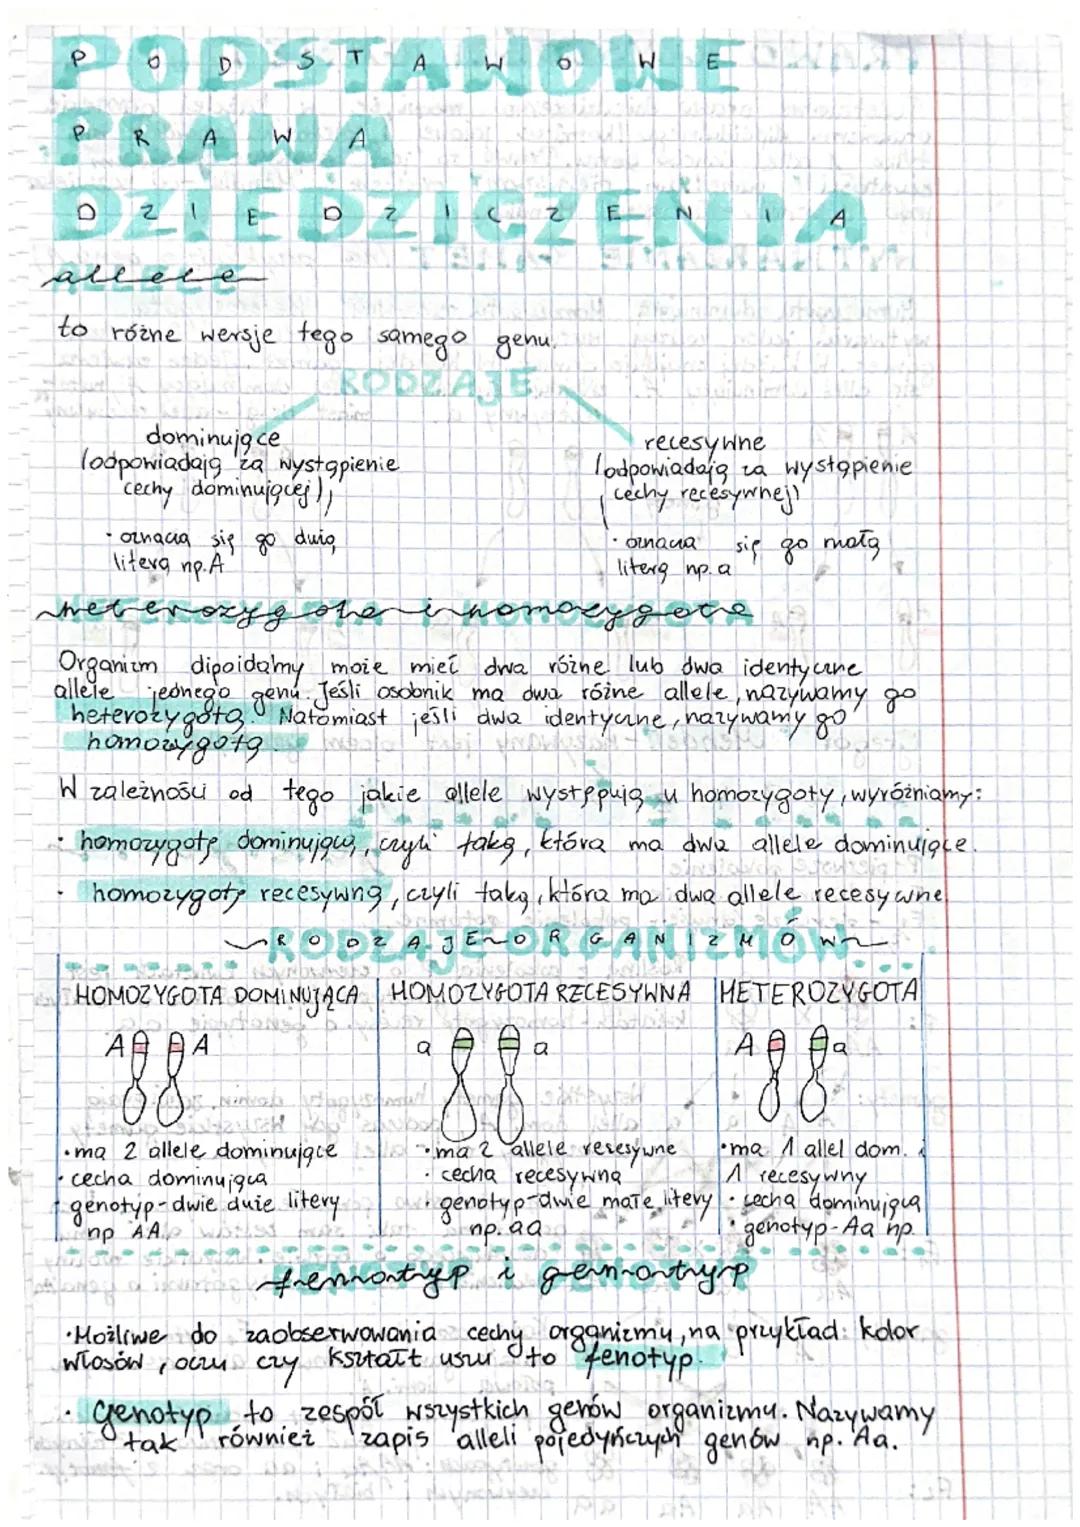 PODSTAWOWE
PRAWA
DZIEDZICZENIA
allele
to różne wersje tego samego genu.
RODZAJE
dominujące
(odpowiadają za wystąpienie
cechy dominującej)
· oznacza się go dużą
literą np. A
recesywne
(odpowiadają za wystąpienie
cechy recesywnej)
· oznacza się go małą
literą np. a
heterozygota i homozygota
Organizm dipoidalny może mieć dwa różne lub dwa identyczne
allele jednego genu. Jeśli osobnik ma dwa różne allele, nazywamy go
heterozygotą. Natomiast jeśli dwa identyczne, nazywamy go
homozygotą.
W zależności od tego jakie allele występują u homozygoty, wyróżniamy:
· homozygotę dominującą, czyli taką, która ma dwa allele dominujące.
· homozygotę recesywną, czyli taką, która ma dwa allele recesywne
RODZAJE ORGANIZMÓW
HOMOZYGOTA DOMINUJĄCA HOMOZYGOTA RECESYWNA HETEROZYGOTA
A A a a A a
· ma 2 allele dominujące
· cecha dominująca
· genotyp - dwie duże litery
np AA.
· ma 2 allele resesywne
· cecha recesywna
· genotyp - dwie małe litery
np. aa
· ma 1 allel dom. i
1 recesywny
· cecha dominująca
· genotyp - Aa np.
fenotyp i genotyp
· Możliwe do zaobserwowania cechy organizmu, na przykład: kolor
włosów, oczu czy kształt uszu to fenotyp.
· Genotyp to zespół wszystkich genów organizmu. Nazywamy
tak również zapis alleli pojedyńczych genów np. Aa.